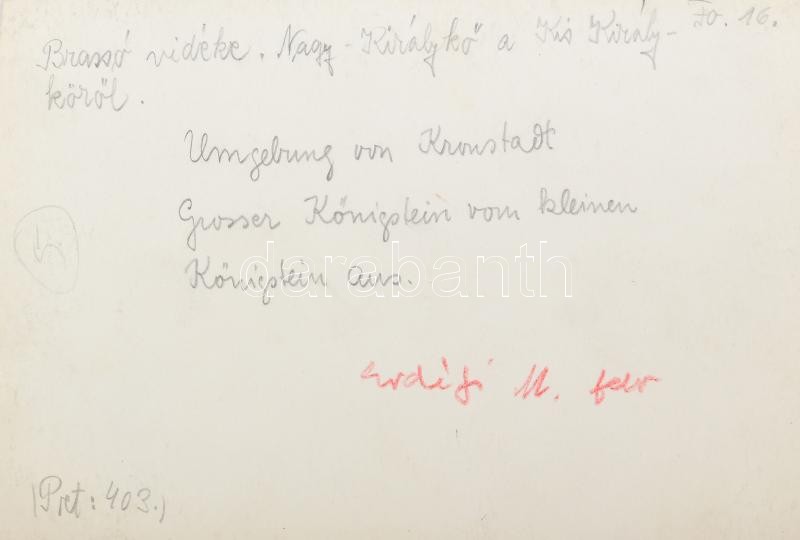 Fo. 16.
Brassó vidéke. Nagy-Királykő a Kis Király-
kőről.
Umgebung von Kronstadt
Grosser Königstein vom kleinen
Königstein aus.
darabanth
Erdélyi M. felv
(Pret: 403.)